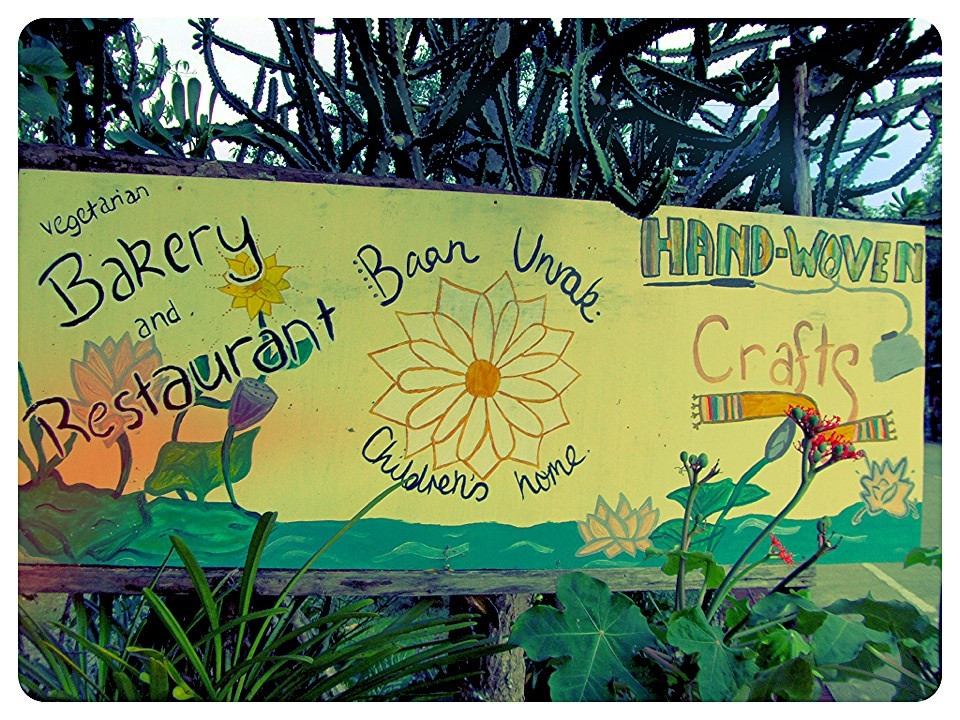 vegetarian
Bakery
and
Restaurant
Baan Unrak
Children's home
HAND-WOVEN
Crafts